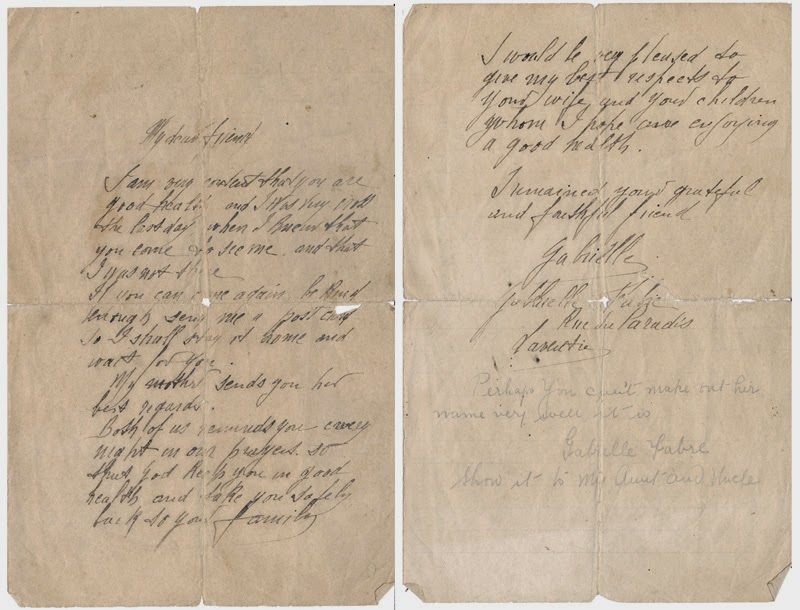 My dear friend
I am very content that you are
good health and I was very
the last day when I knew that
you come to see me and that
I was not there
If you can come again be kind
enough send me a post card
so I shall stay at home and
wait for you.
My mother sends you her
best regards.
Both of us reminds you every
night in our prayers so
that god keep you in good
health and take you safely
back to your family
I would be very pleased to
give my best respects to
your wife and your children
whom I hope are enjoying
a good health.
I remained your grateful
and faithful friend
Gabrielle
Gabrielle Fabre
Rue du Paradis
Laventie
Perhaps you can't make out her
name very well it is
Gabrielle Fabre
Show it to my Aunt and Uncle